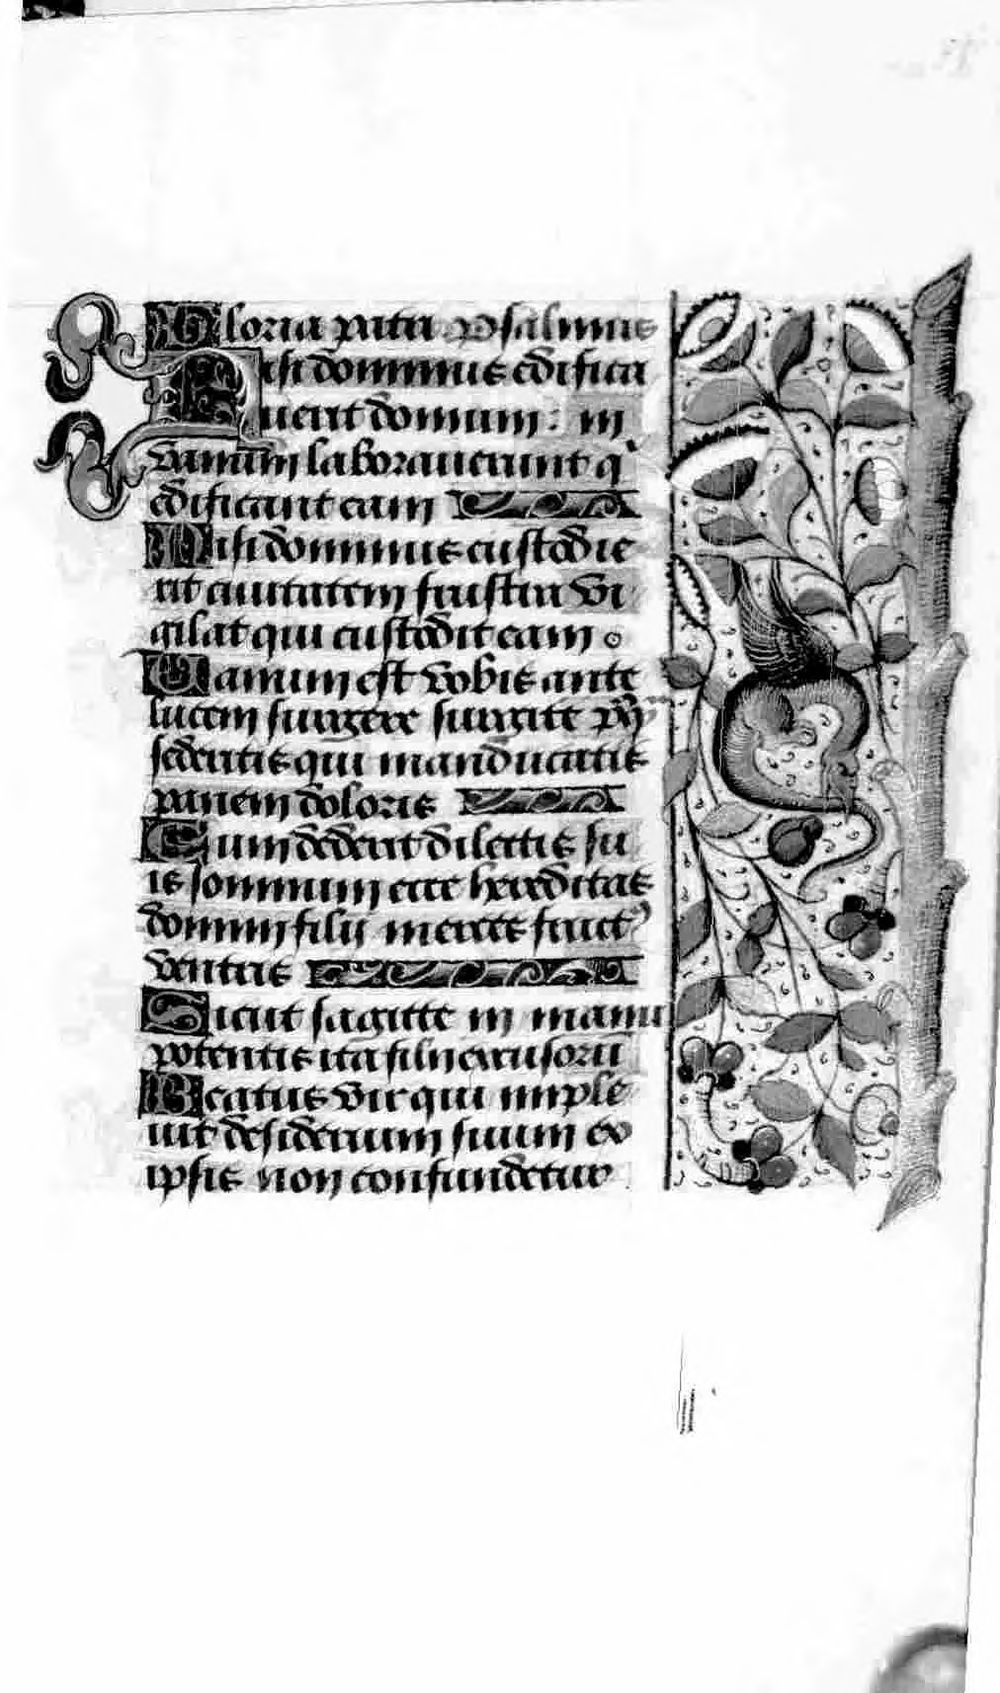 Gloria patri Psalmus
Nisi dominus edifica
uerit domum : in
vanum laborauerunt q
edificant eam
Nisi dominus custodie
rit ciuitatem frustra vi
gilat qui custodit eam
Vanum est vobis ante
lucem surgere surgite
sedentis qui manducatis
panem doloris
Cum dederit dilectis su
is somnum ecce hereditas
domini filii merces fruct9
ventris
Sicut sagitte in manu
potentis ita filii excusorũ
Beatus vir qui imple
uit desiderium suum ex
ipsis non confundetur